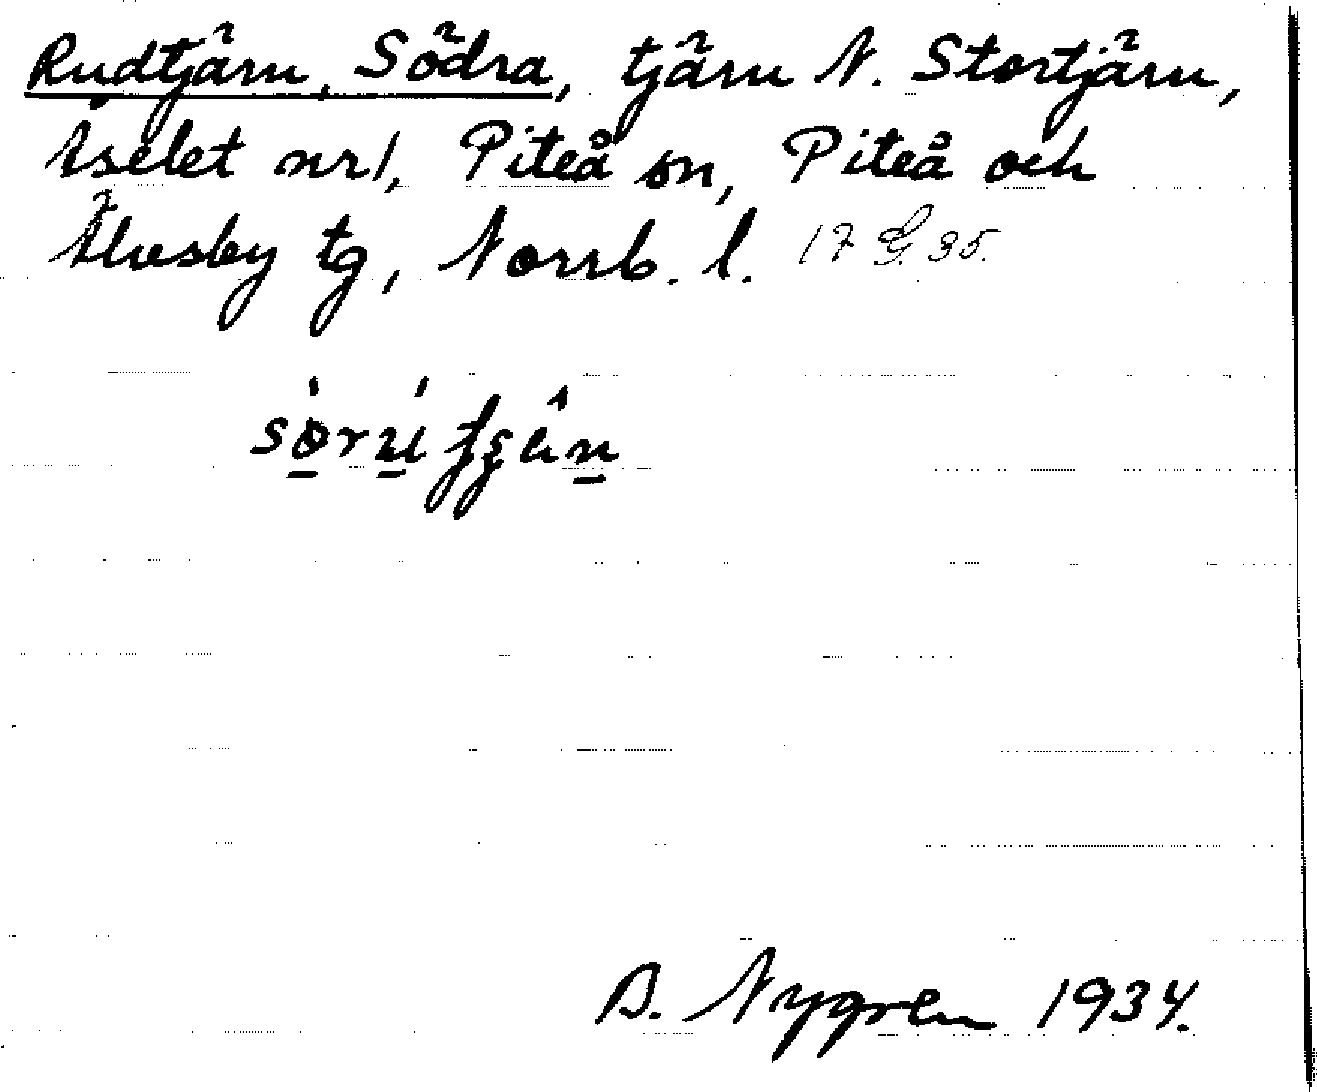 Rudtjärn, Södra, tjärn N. Stortjärn,
Vselet nr 1, Piteå sn, Piteå och
Älvsby tg, Norrb. l. 17 G. 35.
B. Nygren 1934.